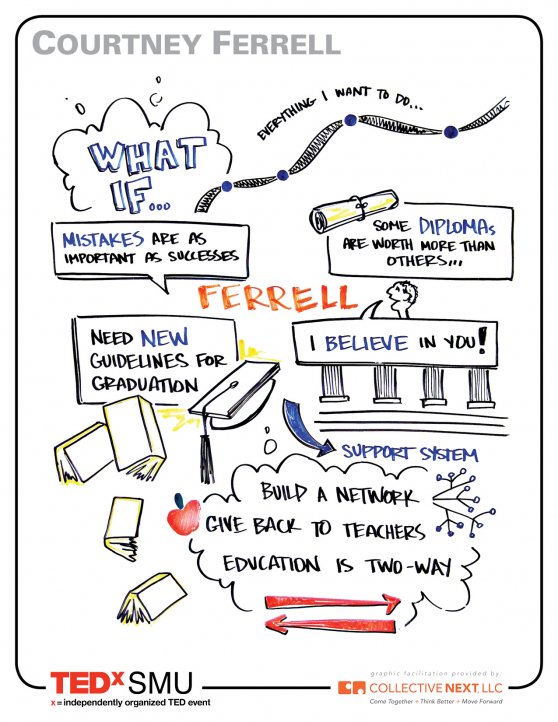 COURTNEY FERRELL
EVERYTHING I WANT TO DO...
WHAT
IF...
MISTAKES ARE AS
IMPORTANT AS SUCCESSES
SOME DIPLOMAS
ARE WORTH MORE THAN
OTHERS...
FERRELL
NEED NEW
GUIDELINES FOR
GRADUATION
I BELIEVE IN YOU!
SUPPORT SYSTEM
BUILD A NETWORK
GIVE BACK TO TEACHERS
EDUCATION IS TWO-WAY
TEDxSMU
x = independently organized TED event
graphic facilitation provided by:
COLLECTIVE NEXT, LLC
Come Together + Think Better + Move Forward